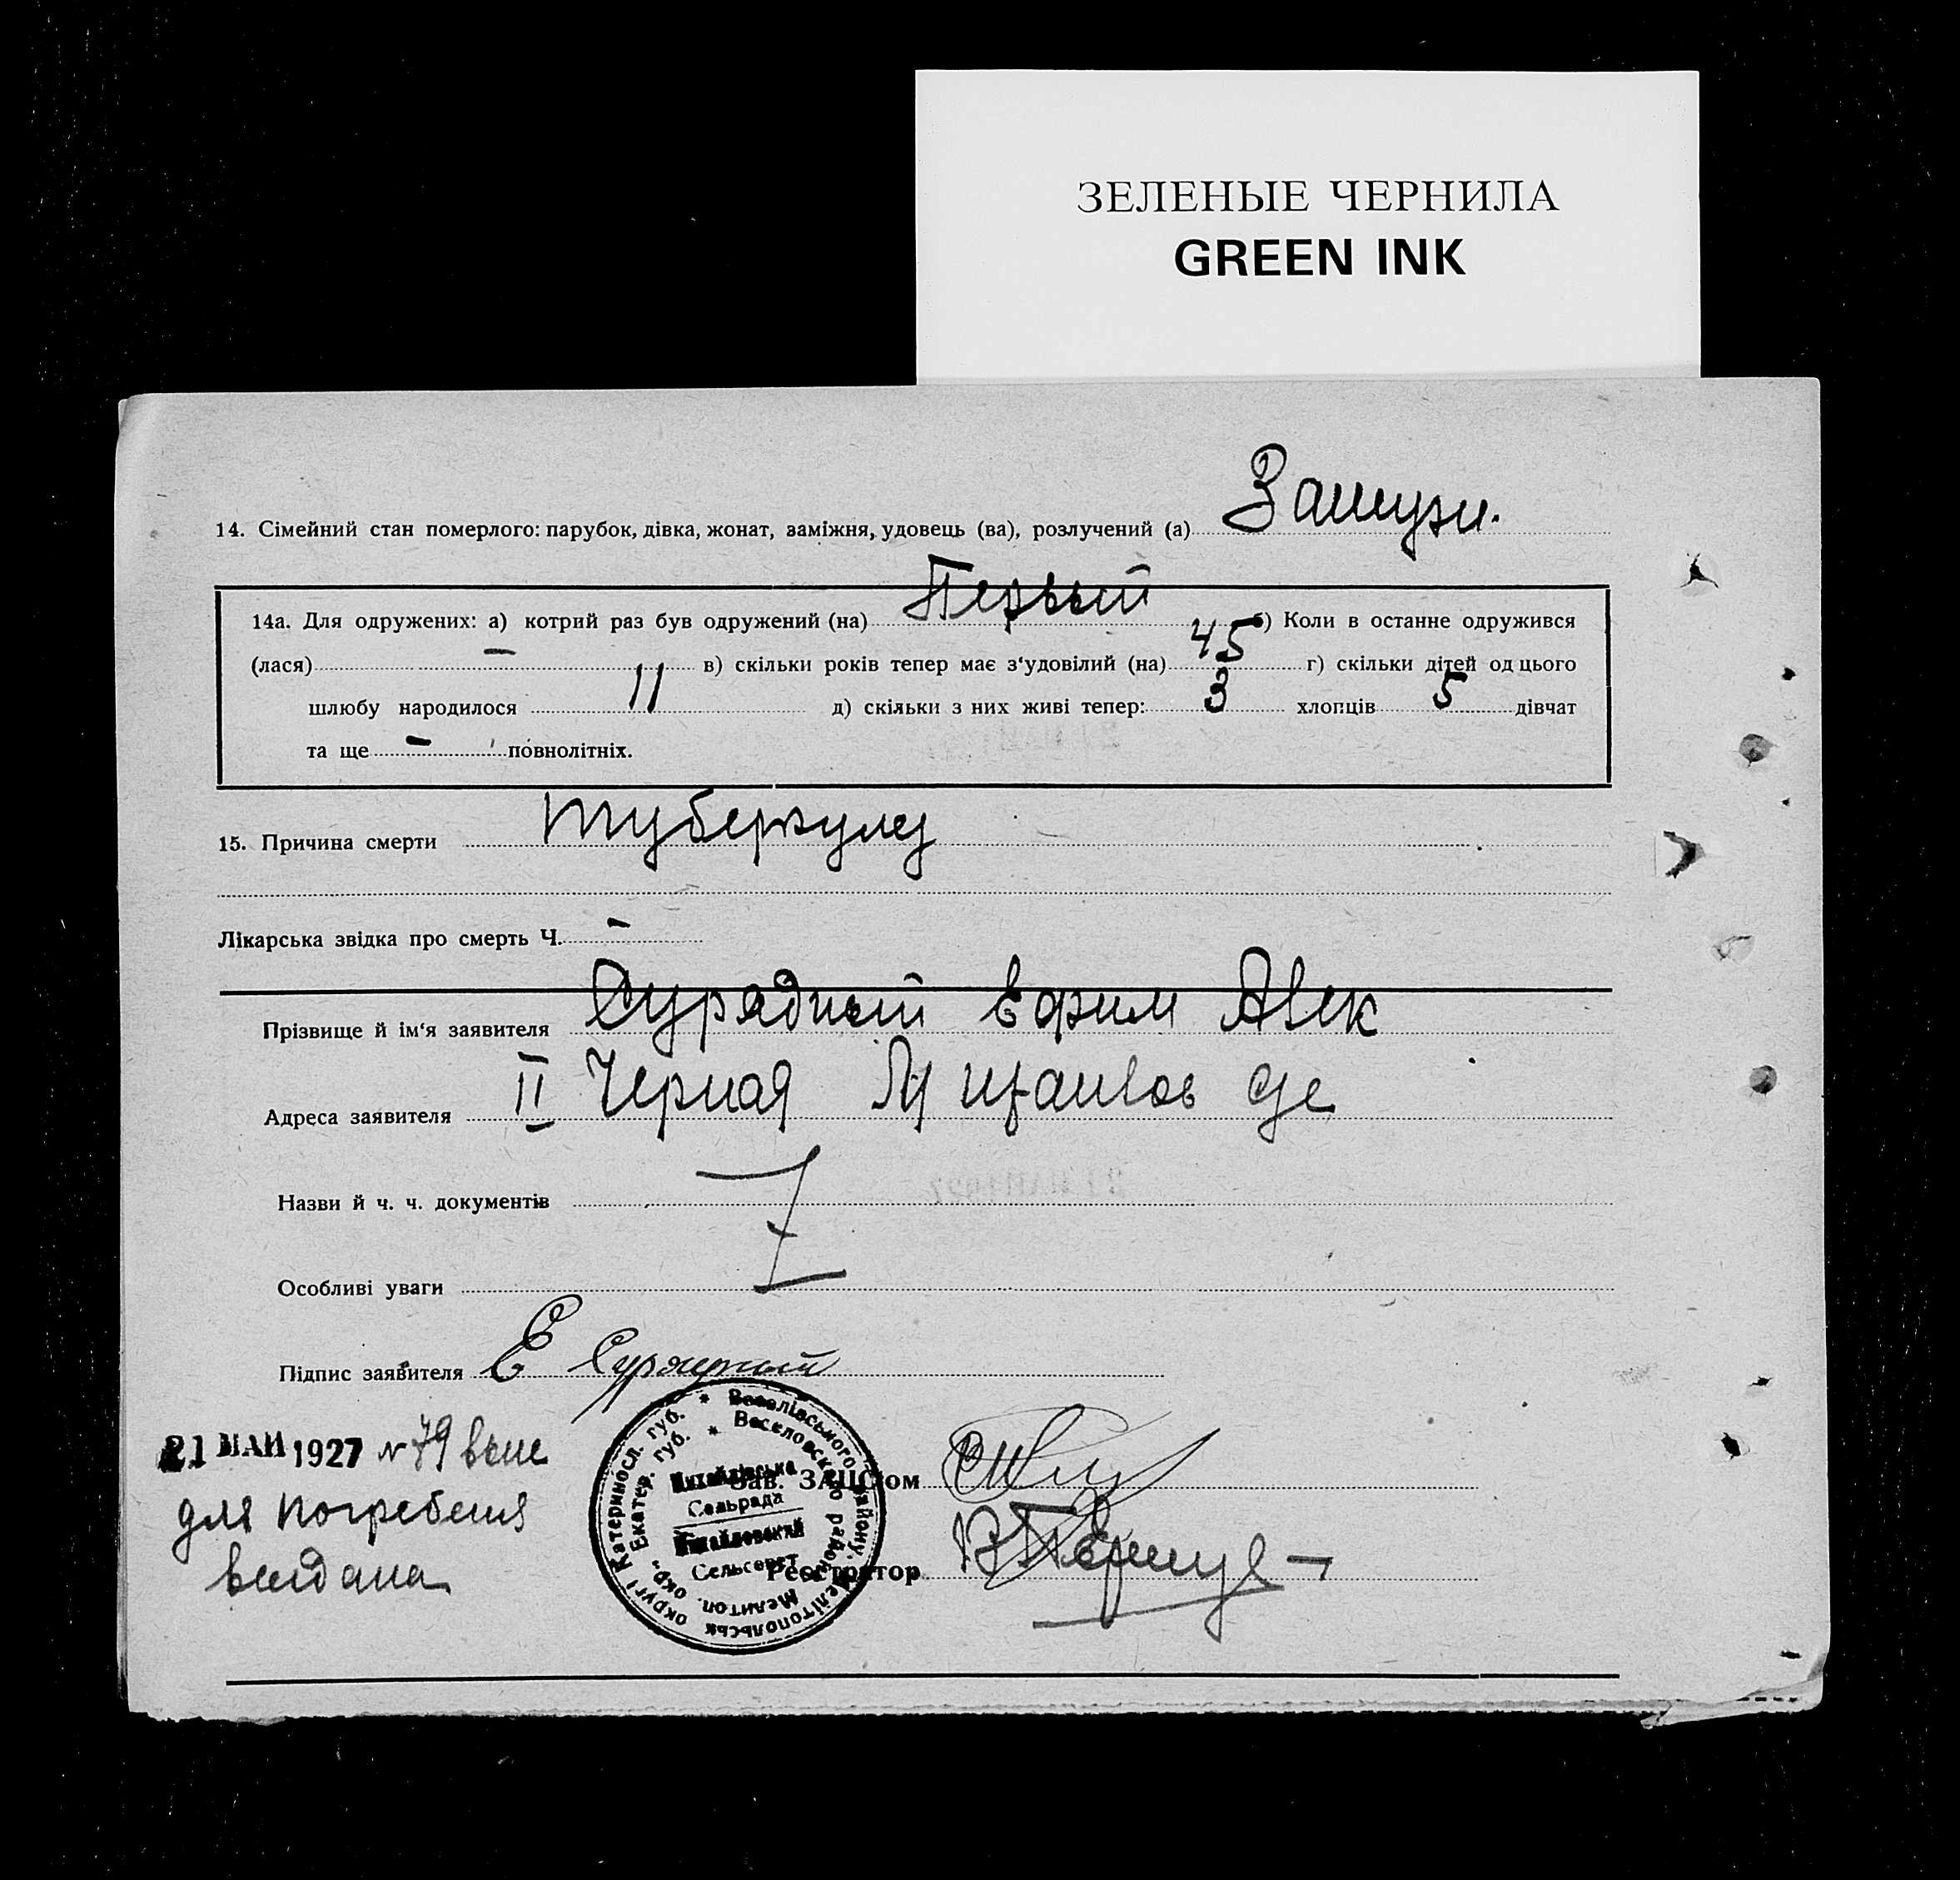 ЗЕЛЕНЫЕ ЧЕРНИЛА
GREEN INK
14. Сімейний стан померлого: парубок, дівка, жонат, заміжня, удовець (ва), розлучений (а) Замужн.
14а. Для одружених: а) котрий раз був одружений (на) Первый б) Коли в останне одружився
(лася) — в) скільки років тепер має з'удовілий (на) 45 г) скільки дітей од цього
шлюбу народилося 11 д) скільки з них живі тепер: 3 хлопців 5 дівчат
та ще - повнолітніх.
15. Причина смерти туберкулез
Лікарська звідка про смерть Ч. -
Прізвище й ім'я заявителя Сурядный Ефим Алек
Адреса заявителя II Черная Михайлов
Назви й ч. ч. документів
Особливі уваги
Підпис заявителя Е Сурядный
21 МАЙ 1927 № 79 вып
для погребения
выдана
Зав. ЗАЦС'ом
Реєстратор
Катериносл. губ. * Веселівського району, Мелітопольськ округі
Екатер. губ. * Веселовского района Мелитоп. окр.
Михайлівська
Сельрада
Михайловский
Сельсовет